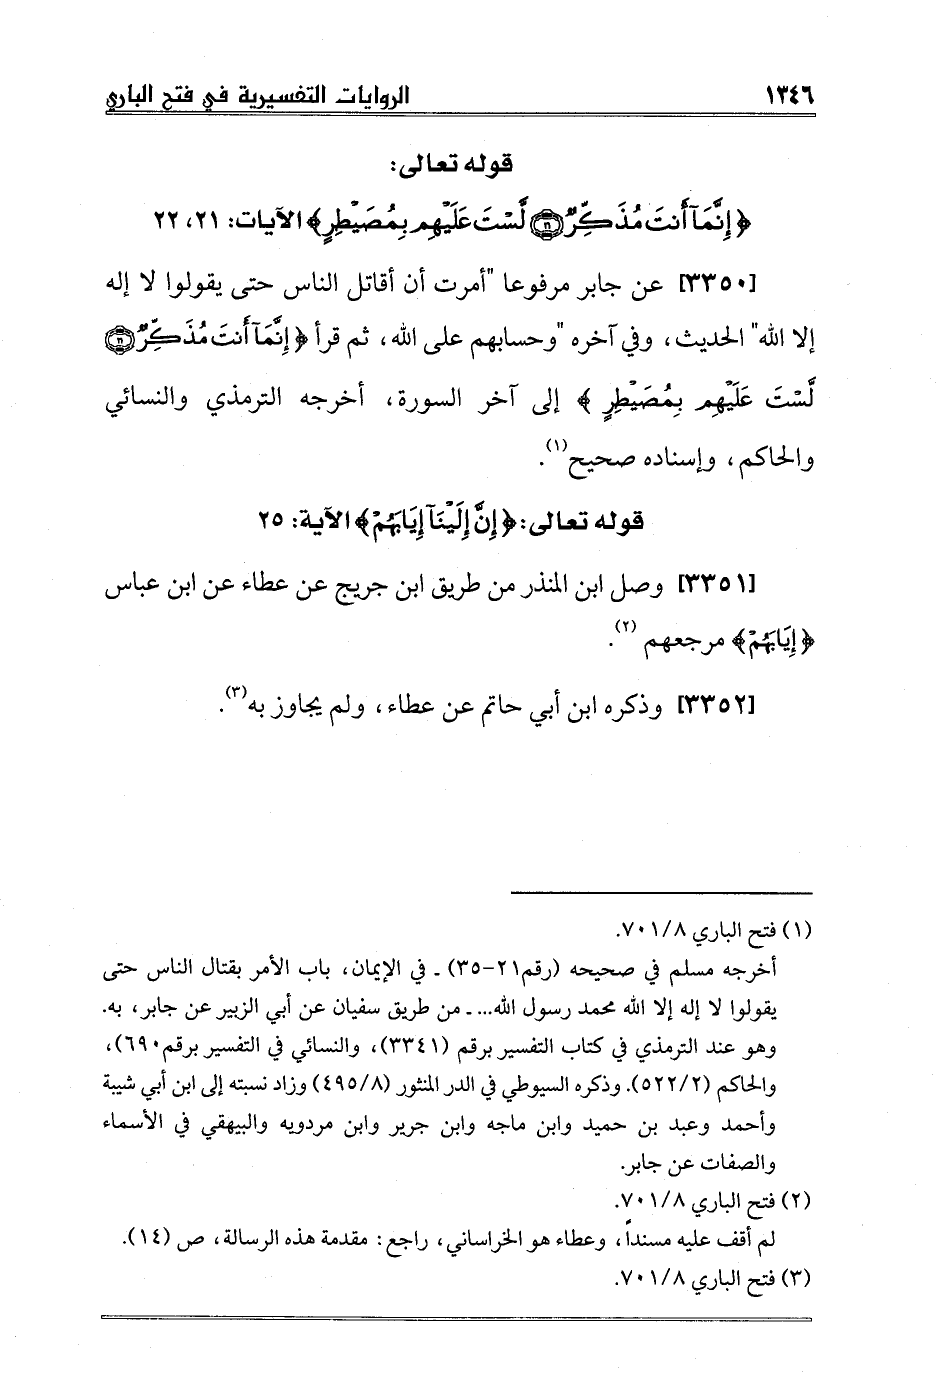 ١٣٤٦ الروايات التفسيرية في فتح الباري
قوله تعالى:
﴿ إِنَّمَآ أَنتَ مُذَكِّرٌ ٢١ لَّسْتَ عَلَيْهِم بِمُصَيْطِرٍ﴾ الآيات: ٢١، ٢٢
[٣٣٥٠] عن جابر مرفوعا "أمرت أن أقاتل الناس حتى يقولوا لا إله
إلا الله" الحديث، وفي آخره "وحسابهم على الله، ثم قرأ ﴿ إِنَّمَآ أَنتَ مُذَكِّرٌ ٢١
لَّسْتَ عَلَيْهِم بِمُصَيْطِرٍ ﴾ إلى آخر السورة، أخرجه الترمذي والنسائي
والحاكم، وإسناده صحيح(١).
قوله تعالى: ﴿ إِنَّ إِلَيْنَآ إِيَابَهُمْ﴾ الآية: ٢٥
[٣٣٥١] وصل ابن المنذر من طريق ابن جريج عن عطاء عن ابن عباس
﴿ إِيَابَهُمْ﴾ مرجعهم (٢).
[٣٣٥٢] وذكره ابن أبي حاتم عن عطاء، ولم يجاوز به(٣).
(١) فتح الباري ٧٠١/٨.
أخرجه مسلم في صحيحه (رقم٢١-٣٥) ـ في الإيمان، باب الأمر بقتال الناس حتى
يقولوا لا إله إلا الله محمد رسول الله... ـ من طريق سفيان عن أبي الزبير عن جابر، به.
وهو عند الترمذي في كتاب التفسير برقم (٣٣٤١)، والنسائي في التفسير برقم٦٩٠)،
والحاكم (٥٢٢/٢). وذكره السيوطي في الدر المنثور (٤٩٥/٨) وزاد نسبته إلى ابن أبي شيبة
وأحمد وعبد بن حميد وابن ماجه وابن جرير وابن مردويه والبيهقي في الأسماء
والصفات عن جابر.
(٢) فتح الباري ٧٠١/٨.
لم أقف عليه مسنداً، وعطاء هو الخراساني، راجع: مقدمة هذه الرسالة، ص (١٤).
(٣) فتح الباري ٧٠١/٨.